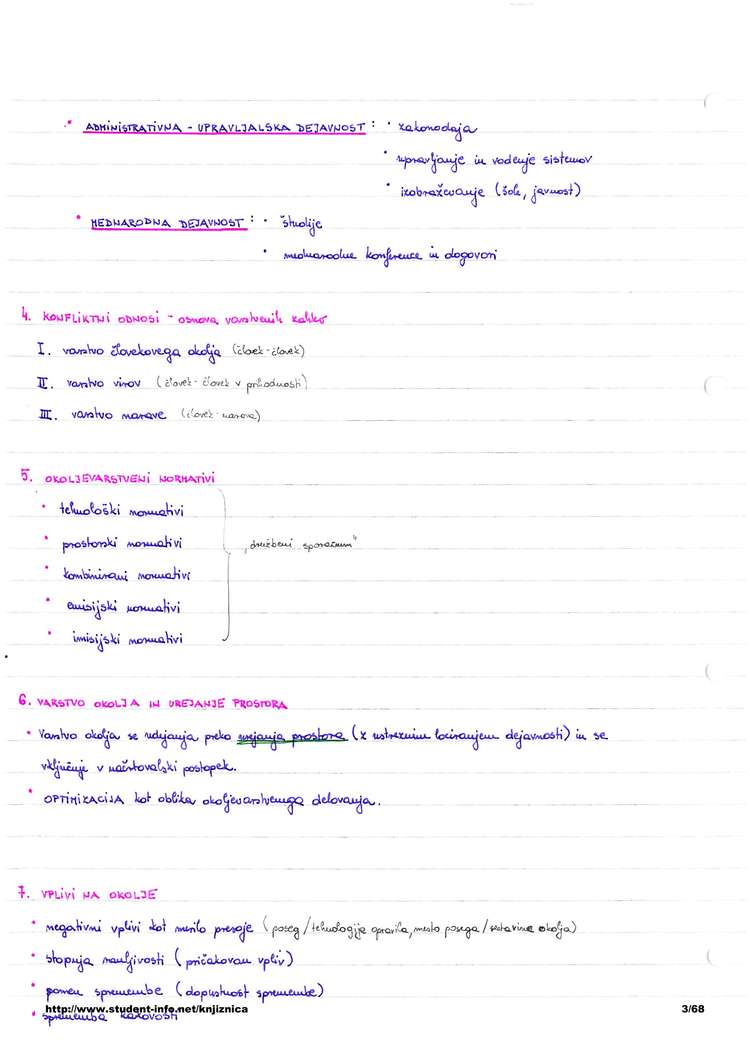 • ADMINISTRATIVNA - UPRAVLJALSKA DEJAVNOST : • zakonodaja
• upravljanje in vodenje sistemov
• izobraževanje (šole, javnost)
• MEDNARODNA DEJAVNOST : • študije
• mednarodne konference in dogovori
4. KONFLIKTNI ODNOSI - osnova varstvenih zahtev
I. varstvo človekovega okolja (človek - človek)
II. varstvo virov (človek - človek v prihodnosti)
III. varstvo narave (človek - narava)
5. OKOLJEVARSTVENI NORMATIVI
• tehnološki normativi
• prostorski normativi „družbeni sporazum"
• kombinirani normativi
• emisijski normativi
• imisijski normativi
6. VARSTVO OKOLJA IN UREJANJE PROSTORA
• Varstvo okolja se udejanja preko urejanja prostora (z ustreznim lociranjem dejavnosti) in se
vključuje v načrtovalski postopek.
• OPTIMIZACIJA kot oblika okoljevarstvenega delovanja.
7. VPLIVI NA OKOLJE
• negativni vplivi kot merilo presoje (poseg / tehnologija opravila, mesto posega / sestavine okolja)
• stopnja ranljivosti (pričakovan vpliv)
• pomen spremembe (dopustnost spremembe)
• sprememba kakovosti
http://www.student-info.net/knjiznica 3/68